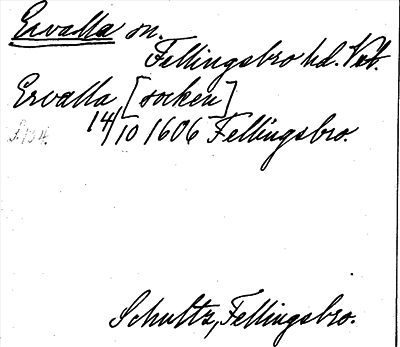 Ervalla sn.
Fellingsbro hd. Vstm.
Ervalla [socken]
14/10 1606 Fellingsbro.
Schultz, Fellingsbro.